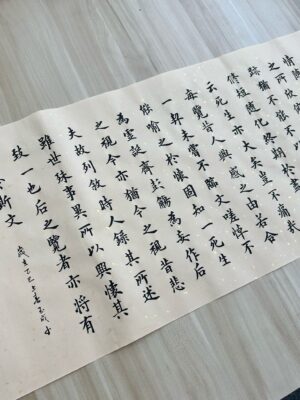 情隨
之所
跡猶不能不
修短隨化終期
云死生亦大矣豈不痛哉
每覽昔人興感之由若合
一契未嘗不臨文嗟悼不
能喻之於懷固知一死生
為虛誕齊彭殤為妄作后
之視今亦猶今之視昔悲
夫故列敘時人錄其所述
雖世殊事異所以興懷其
致一也后之覽者亦將有
於斯文
歲乙巳